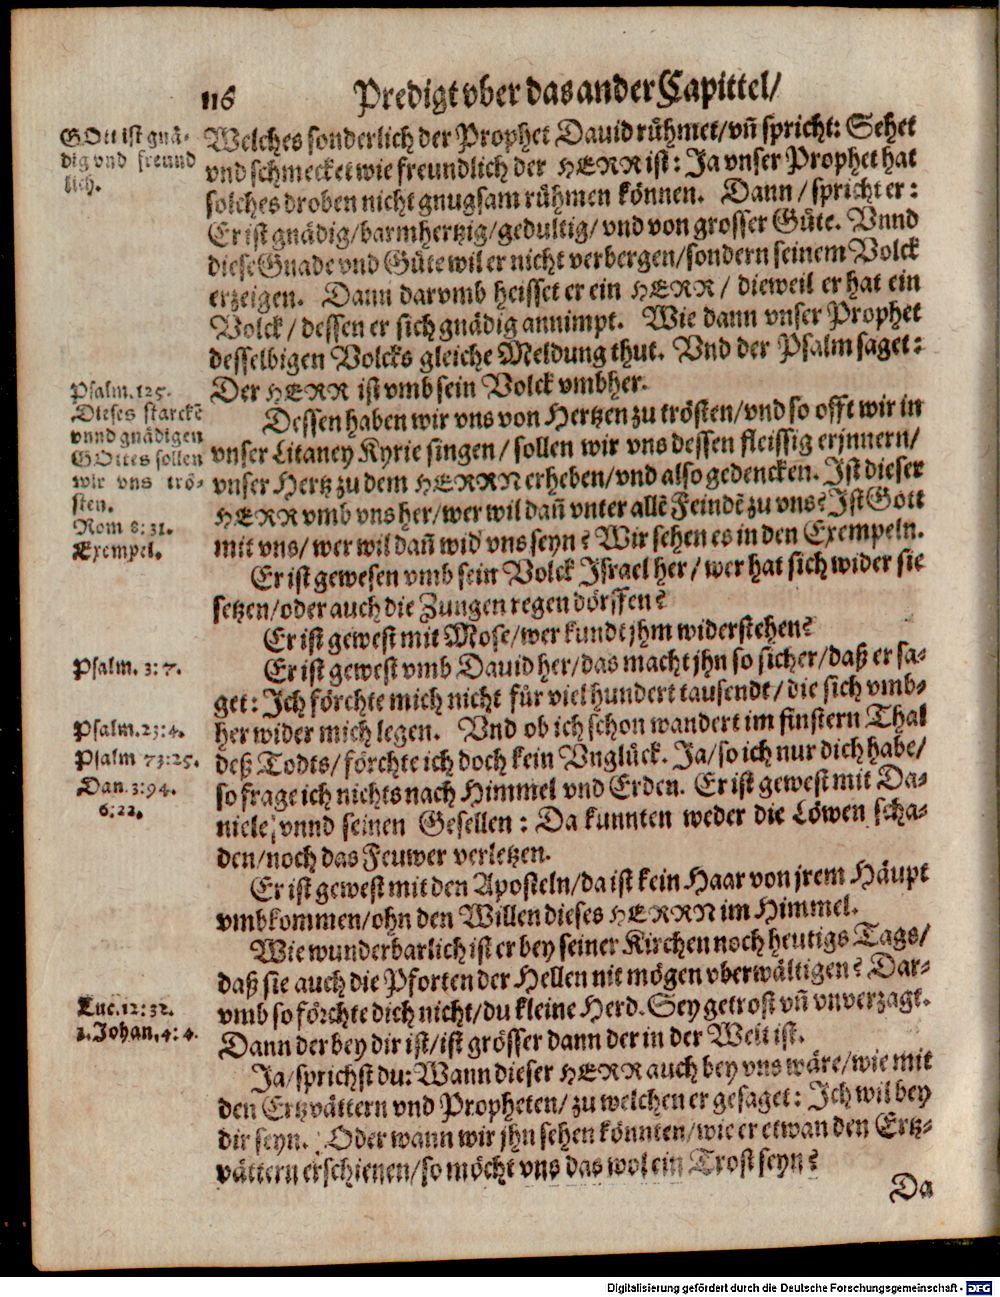 116 Predigt vber das ander Capittel/
GOtt ist gnä-
dig vnd freund
lich.
Welches sonderlich der Prophet Dauid rühmet/vñ spricht: Sehet
vnd schmecket wie freundlich der HERR ist: Ja vnser Prophet hat
solches droben nicht gnugsam rühmen können. Dann / spricht er:
Er ist gnädig/barmhertzig/gedultig/ vnd von grosser Güte. Vnnd
diese Gnade vnd Güte wil er nicht verbergen/sondern seinem Volck
erzeigen. Dann darvmb heisset er ein HERR / dieweil er hat ein
Volck / dessen er sich gnädig annimpt. Wie dann vnser Prophet
desselbigen Volcks gleiche Meldung thut. Vnd der Psalm saget:
Der HERR ist vmb sein Volck vmbher.
Psalm. 125.
Dieses starckē
vnnd gnädigen
GOttes sollen
wir vns trö-
sten.
Rom 8:31.
Exempel.
Dessen haben wir vns von Hertzen zu trösten/vnd so offt wir in
vnser Litaney Kyrie singen / sollen wir vns dessen fleissig erjnnern/
vnser Hertz zu dem HERRN erheben/vnd also gedencken. Ist dieser
HERR vmb vns her/wer wil dañ vnter allē Feindē zu vns? Ist Gott
mit vns/ wer wil dañ wid vns seyn? Wir sehen es in den Exempeln.
Er ist gewesen vmb sein Volck Israel her / wer hat sich wider sie
setzen/oder auch die Zungen regen dörffen?
Er ist gewest mit Mose/wer kundt jhm widerstehen?
Psalm. 3:7.
Er ist gewest vmb Dauid her/das macht jhn so sicher/daß er sa-
get: Ich förchte mich nicht für viel hundert tausendt/die sich vmb-
her wider mich legen. Vnd ob ich schon wandert im finstern Thal
Psalm. 23:4.
deß Todts/förchte ich doch kein Vnglück. Ja/so ich nur dich habe/
Psalm 73:25.
so frage ich nichts nach Himmel vnd Erden. Er ist gewest mit Da-
Dan. 3:94.
6:22.
niele/vnnd seinen Gesellen: Da kunnten weder die Löwen scha-
den/noch das Feuwer verletzen.
Er ist gewest mit den Aposteln/da ist kein Haar von jrem Häupt
vmbkommen/ohn den Willen dieses HERRN im Himmel.
Wie wunderbarlich ist er bey seiner Kirchen noch heutigs Tags/
daß sie auch die Pforten der Hellen nit mögen vberwältigen? Dar-
Luc. 12:32.
vmb so förchte dich nicht/du kleine Herd. Sey getrost vñ vnverzagt.
1. Johan. 4:4.
Dann der bey dir ist/ist grösser dann der in der Welt ist.
Ja/sprichst du: Wann dieser HERR auch bey vns wäre/wie mit
den Ertzvättern vnd Propheten/ zu welchen er gesaget: Ich wil bey
dir seyn. Oder wann wir jhn sehen könnten/wie er etwan den Ertz-
vättern erschienen/so möcht vns das wol ein Trost seyn?
Da
Digitalisierung gefördert durch die Deutsche Forschungsgemeinschaft - DFG